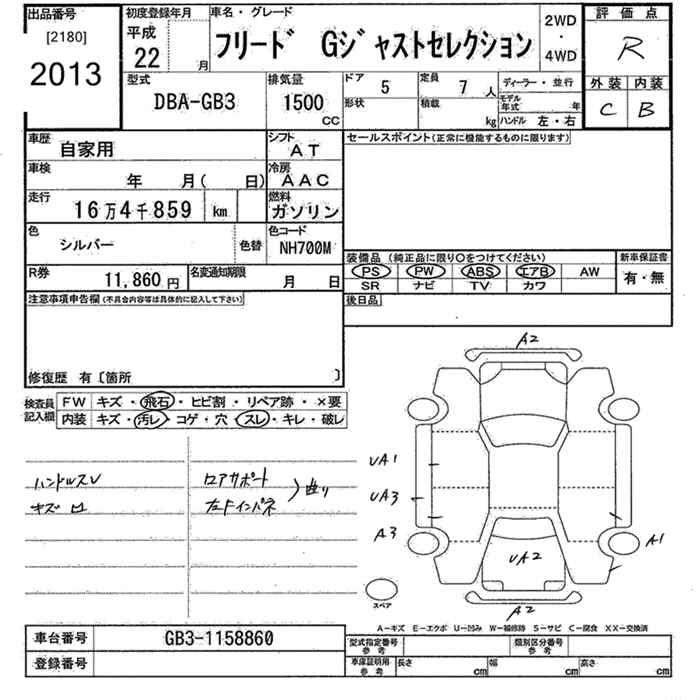 出品番号
[2180]
2013
初度登録年月
平成
22
月
車名・グレード
フリード Gジャストセレクション
2WD
・
4WD
評価点
R
外装 内装
C B
型式
DBA-GB3
排気量
1500
CC
ドア 5
形状
定員 7 人
積載 kg
ディーラー・並行
モデル年式 年
ハンドル 左・右
車歴
自家用
シフト
AT
車検
年 月( 日)
冷房
AAC
走行
16万4千859 km
燃料
ガソリン
色
シルバー
色替
色コード
NH700M
R券
11,860 円
名変通知期限
月 日
セールスポイント(正常に機能するものに限ります)
装備品(純正品に限り○をつけてください)
PS PW ABS エアB AW
SR ナビ TV カワ
新車保証書
有・無
後日品
注意事項申告欄(不具合内容等は具体的に記入して下さい)
修復歴 有〔箇所 〕
検査員
記入欄
FW キズ・飛石・ヒビ割・リペア跡・×要
内装 キズ・汚レ・コゲ・穴・スレ・キレ・破レ
ハンドルスレ
キズ凹
ロアサポート
左Fインパネ
曲り
A2
UA1
UA3
A3
A1
UA2
A2
スペア
A−キズ E−エクボ U−凹み W−補修跡 S−サビ C−腐食 XX−交換済
車台番号 GB3-1158860
登録番号
型式指定番号
参考
類別区分番号
参考
車庫証明用
参考
長さ cm
幅 cm
高さ cm